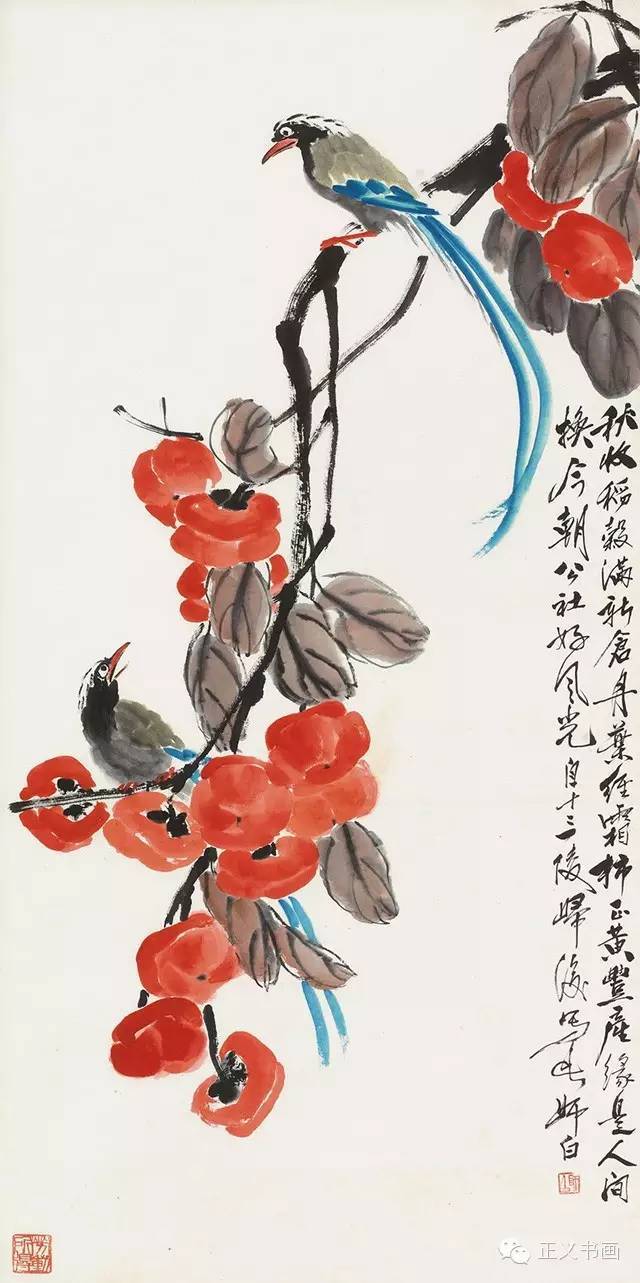 秋收稻穀滿新倉丹葉經霜柿正黃豐產緣是人間
換今朝公社好風光自十三陵歸後寫師白
勞動所得
正义书画